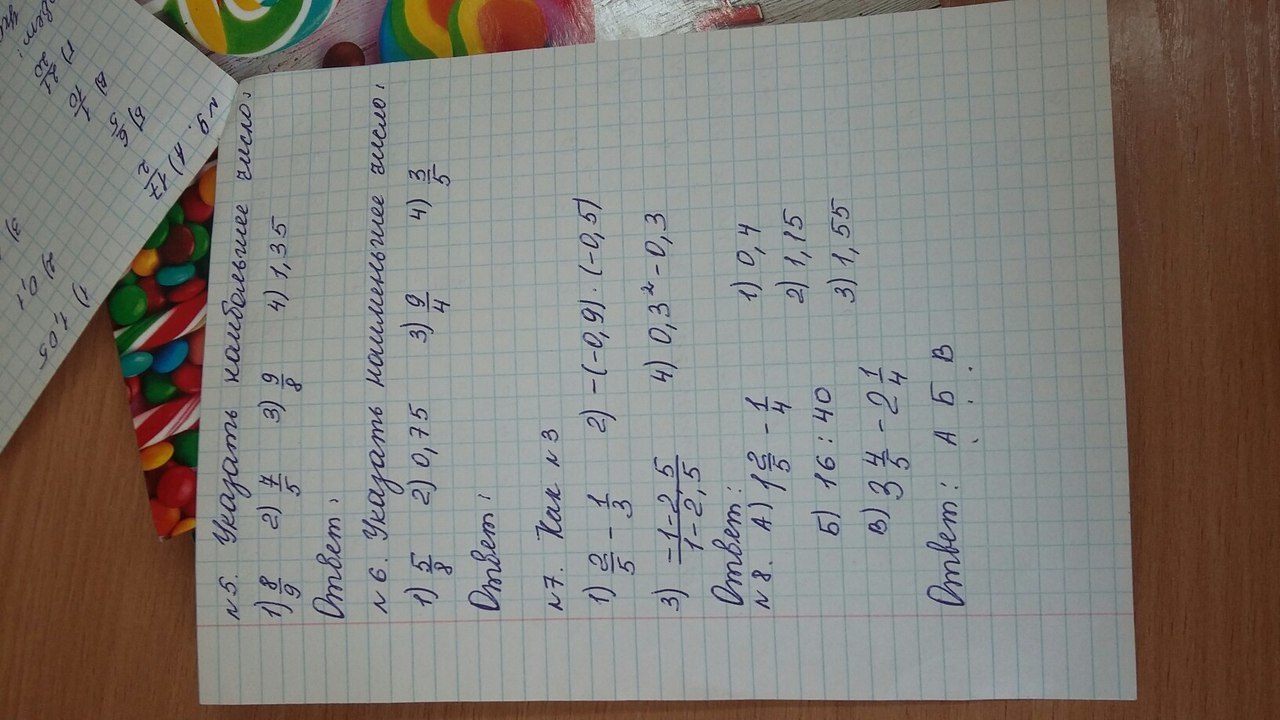 N5. Указать наибольшее число:
1) 8/9 2) 7/5 3) 9/8 4) 1,35
Ответ:
N6. Указать наименьшее число:
1) 5/8 2) 0,75 3) 9/4 4) 3/5
Ответ:
N7. Как N3
1) 2/5 - 1/3 2) -(-0,9)·(-0,5)
3) (-1-2,5)/(1-2,5) 4) 0,3² - 0,3
Ответ:
N8. А) 1 2/5 - 1/4 1) 0,4
Б) 16 : 40 2) 1,15
В) 3 4/5 - 2 1/4 3) 1,55
Ответ: А Б В
N9. А) 17/2
Б) 6/5
В) 1/10
Г) 21/20
1) 1,05
2) 0,1
3)